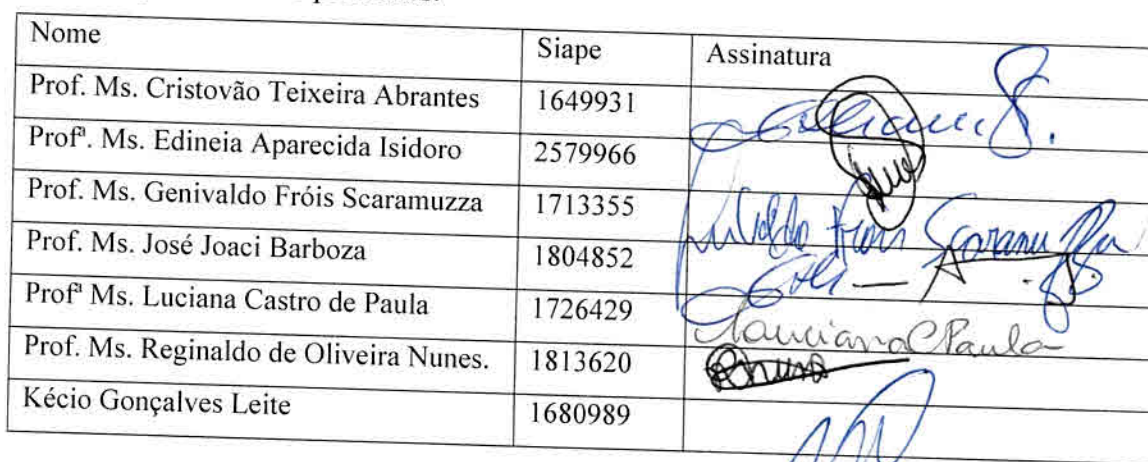 Nome Siape Assinatura
Prof. Ms. Cristovão Teixeira Abrantes 1649931
Profª. Ms. Edineia Aparecida Isidoro 2579966
Prof. Ms. Genivaldo Fróis Scaramuzza 1713355
Prof. Ms. José Joaci Barboza 1804852
Profª Ms. Luciana Castro de Paula 1726429 Luciana C Paula
Prof. Ms. Reginaldo de Oliveira Nunes. 1813620
Kécio Gonçalves Leite 1680989